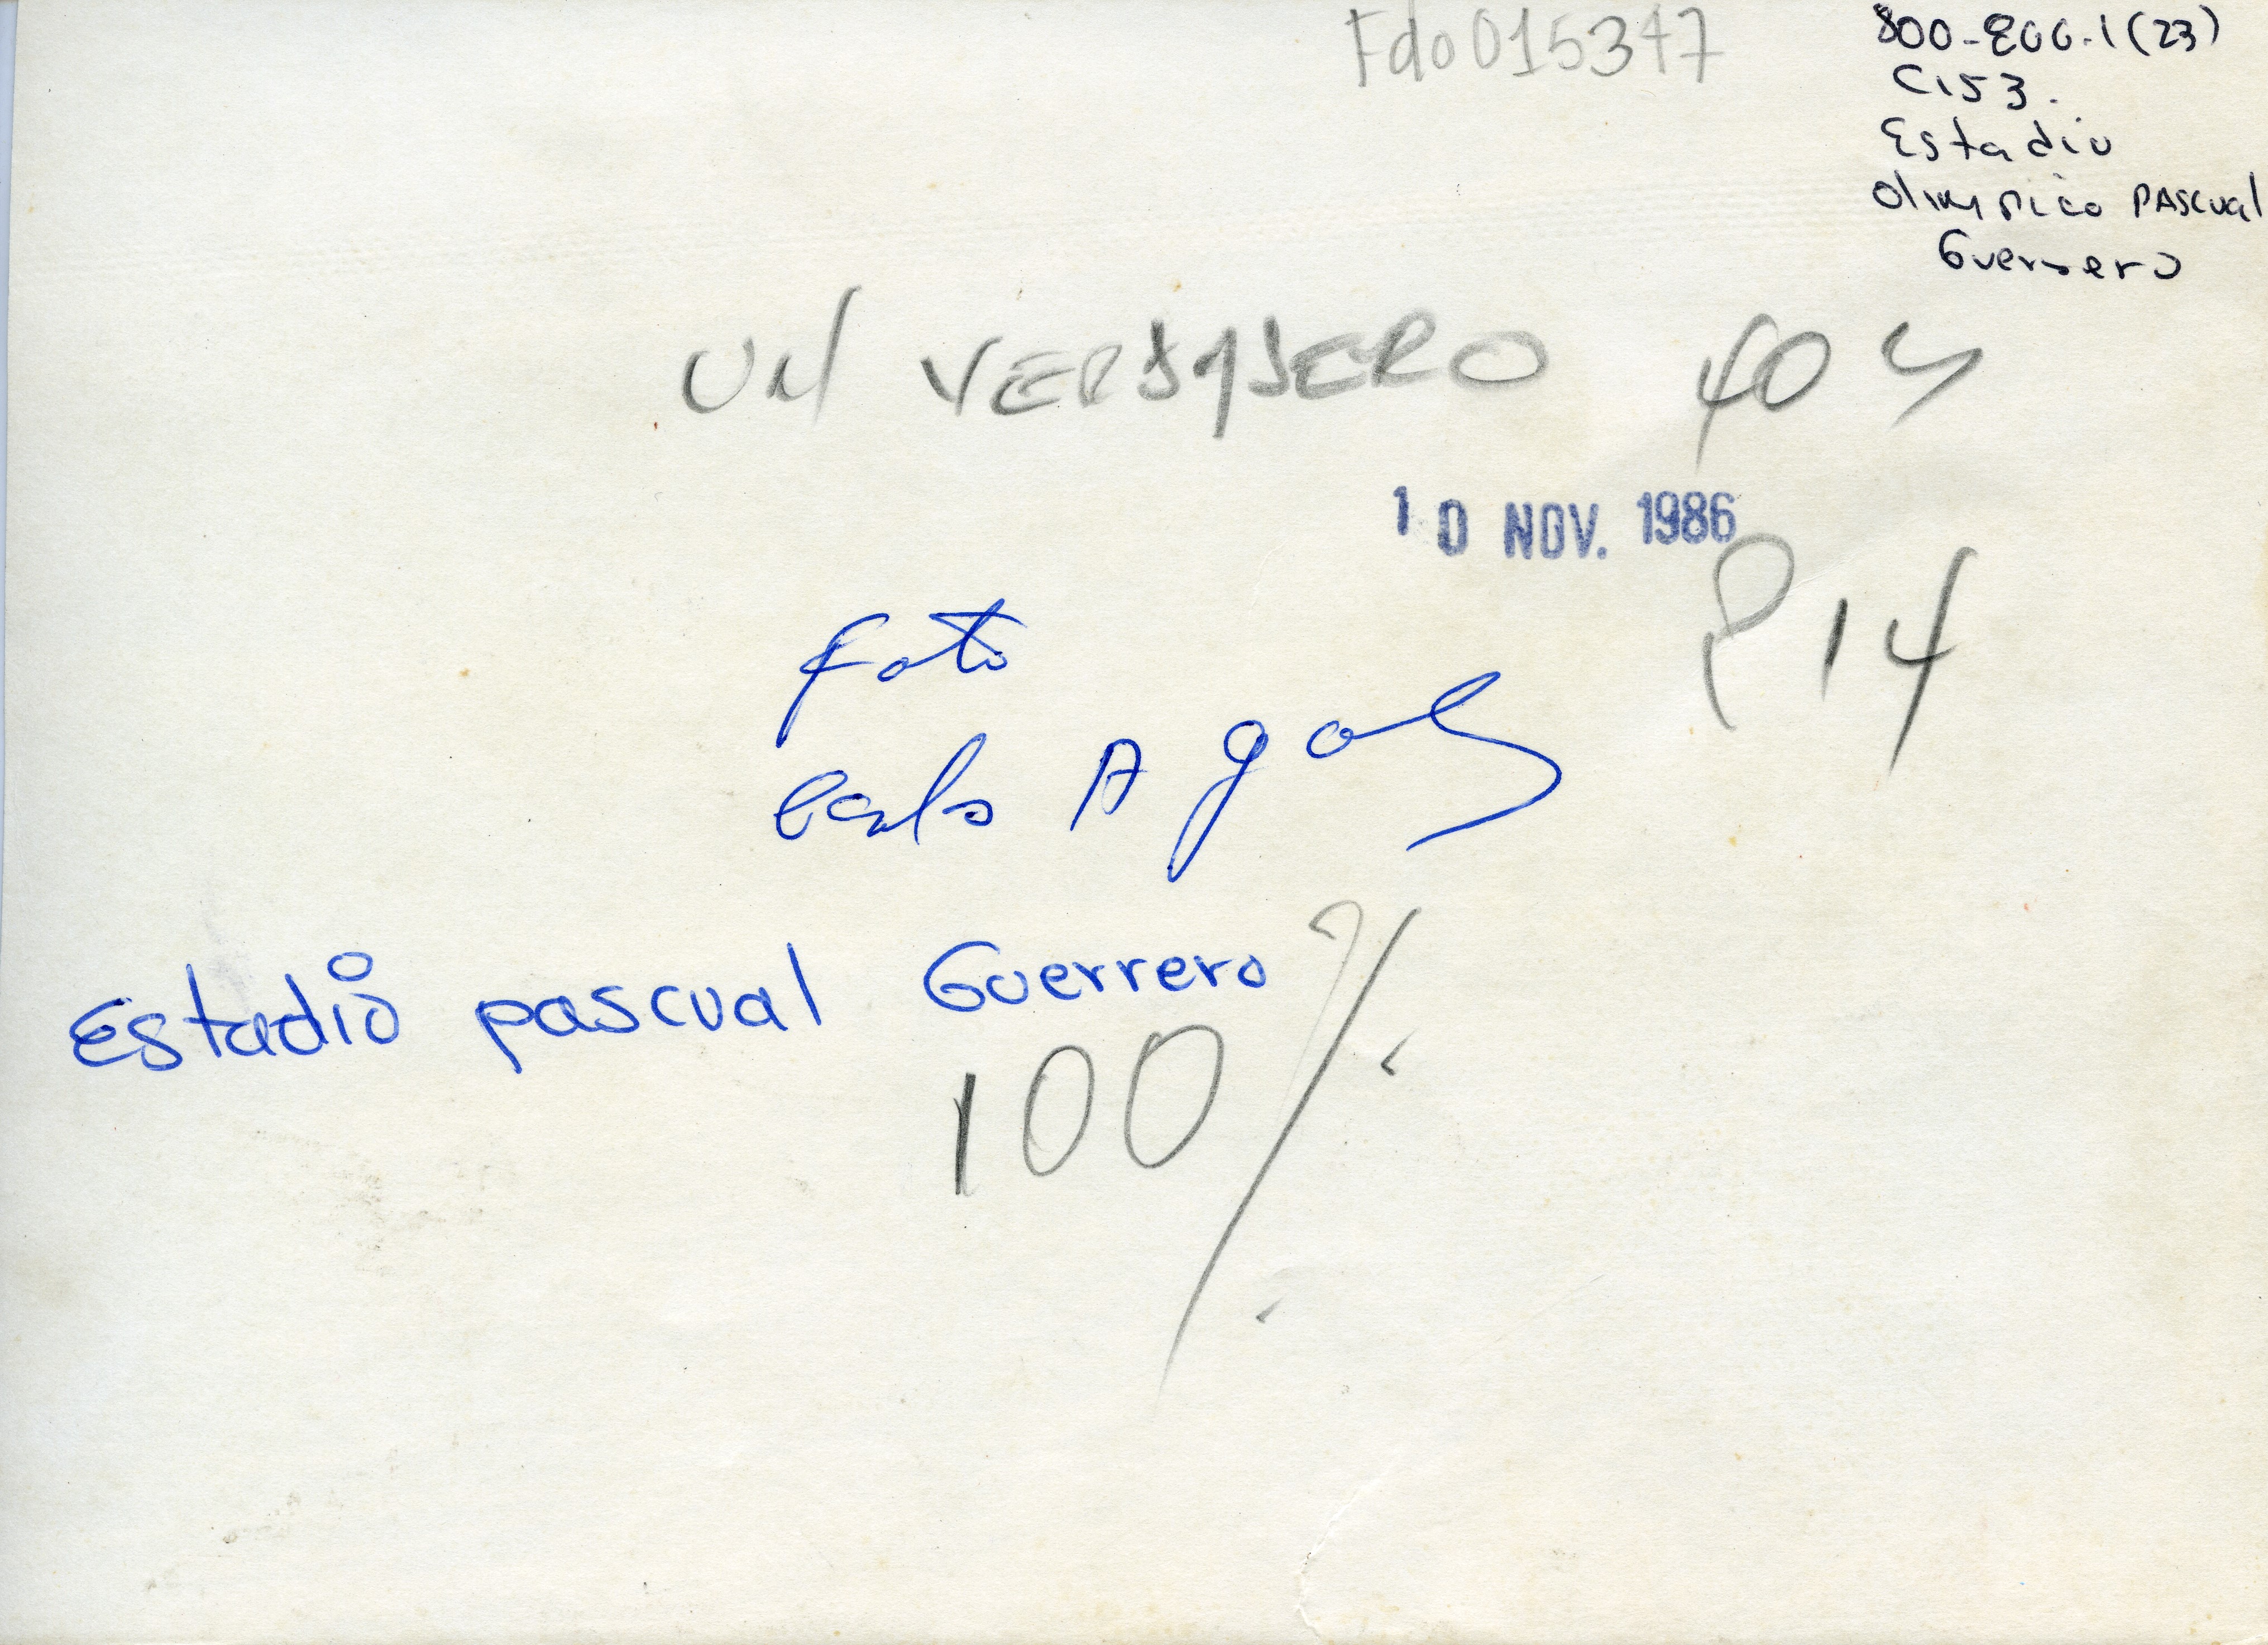 Fdo 015347
800-800-1(23)
C153.
Estadio
Olimpico PASCUAL
Guerrero
UN
40
10 NOV. 1986
P 14
foto
Estadio pascual Guerrero
100%